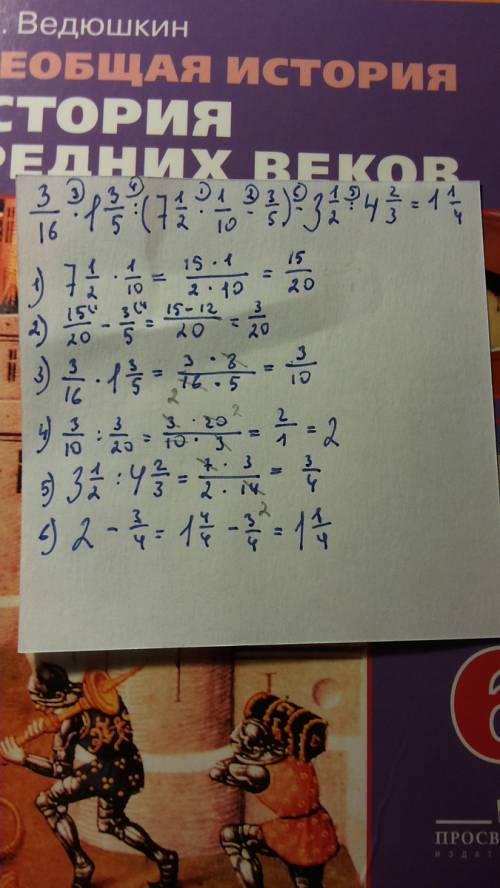 . Ведюшкин
ЕОБЩАЯ ИСТОРИЯ
СТОРИЯ
РЕДНИХ ВЕКОВ
3/16 ③· 1 3/5 ④: (7 1/2 ①· 1/10 ②- 3/5) ⑥- 3 1/2 ⑤: 4 2/3 = 1 1/4
1) 7 1/2 · 1/10 = 15·1/2·10 = 15/20
2) 15/20 - 3/5 = 15-12/20 = 3/20
3) 3/16 · 1 3/5 = 3·8/16·5 = 3/10
4) 3/10 : 3/20 = 3·20/10·3 = 2/1 = 2
5) 3 1/2 : 4 2/3 = 7·3/2·14 = 3/4
6) 2 - 3/4 = 1 4/4 - 3/4 = 1 1/4
6
ПРОСВ
ИЗДАТ